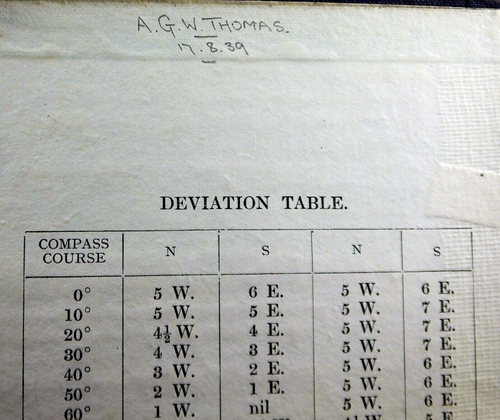 A. G. W. THOMAS.
17. 8. 39
DEVIATION TABLE.
COMPASS COURSE N S N S
0° 5 W. 6 E. 5 W. 6 E.
10° 5 W. 5 E. 5 W. 7 E.
20° 4½ W. 4 E. 5 W. 7 E.
30° 4 W. 3 E. 5 W. 7 E.
40° 3 W. 2 E. 5 W. 6 E.
50° 2 W. 1 E. 5 W. 6 E.
60° 1 W. nil 5 W. 6 E.